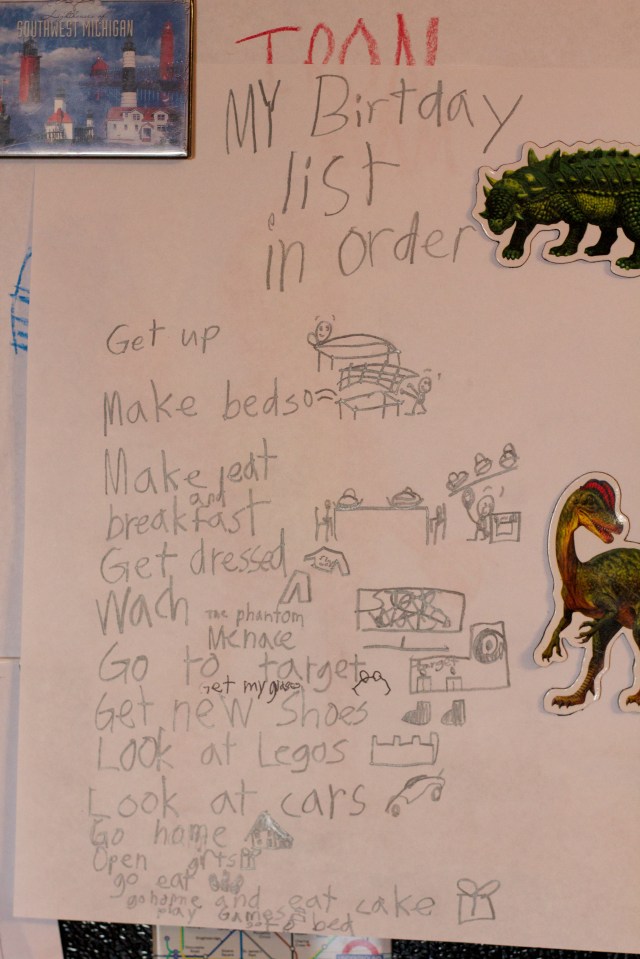 SOUTHWEST MICHIGAN
MY Birtday
list
in order
Get up
Make beds
Make eat
and
breakfast
Get dressed
Wach The phantom
Menace
STAR
WARS
Go to target
Get my glases
Get new shoes
Look at Legos
Look at cars
Go home
Open gifts
go eat
go home and eat cake
play Games
bed